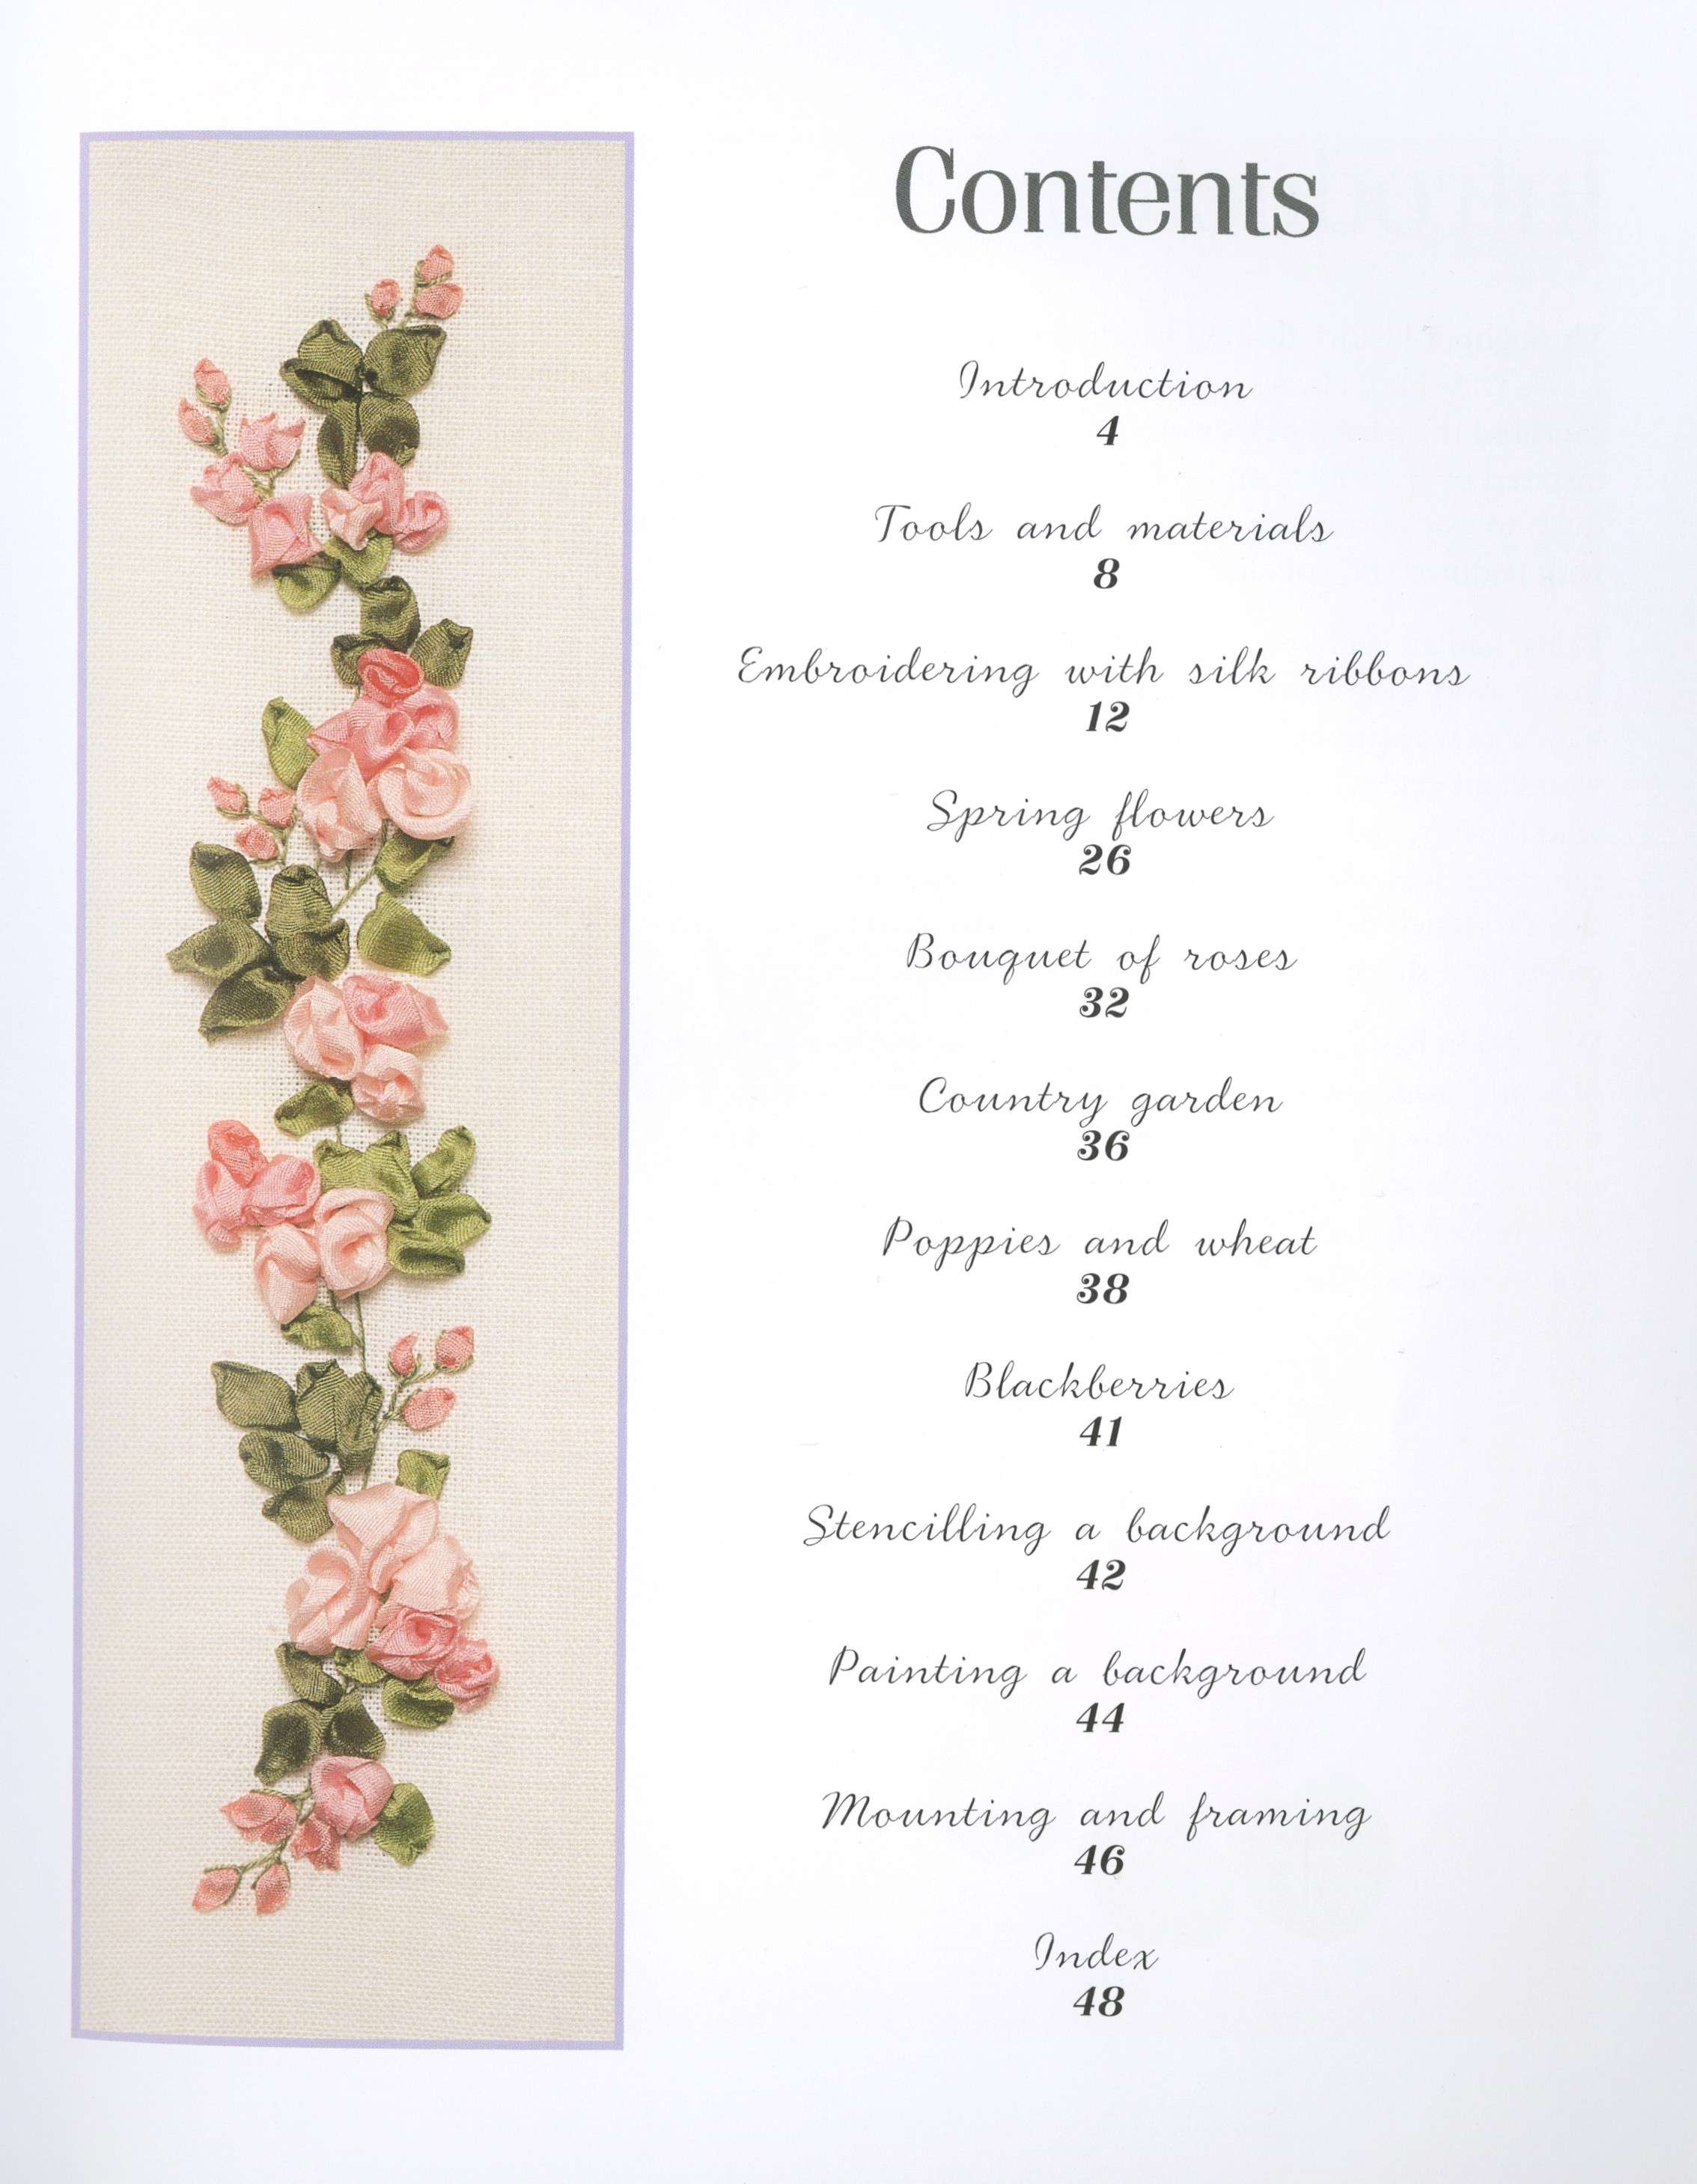 Contents
Introduction
4
Tools and materials
8
Embroidering with silk ribbons
12
Spring flowers
26
Bouquet of roses
32
Country garden
36
Poppies and wheat
38
Blackberries
41
Stencilling a background
42
Painting a background
44
Mounting and framing
46
Index
48